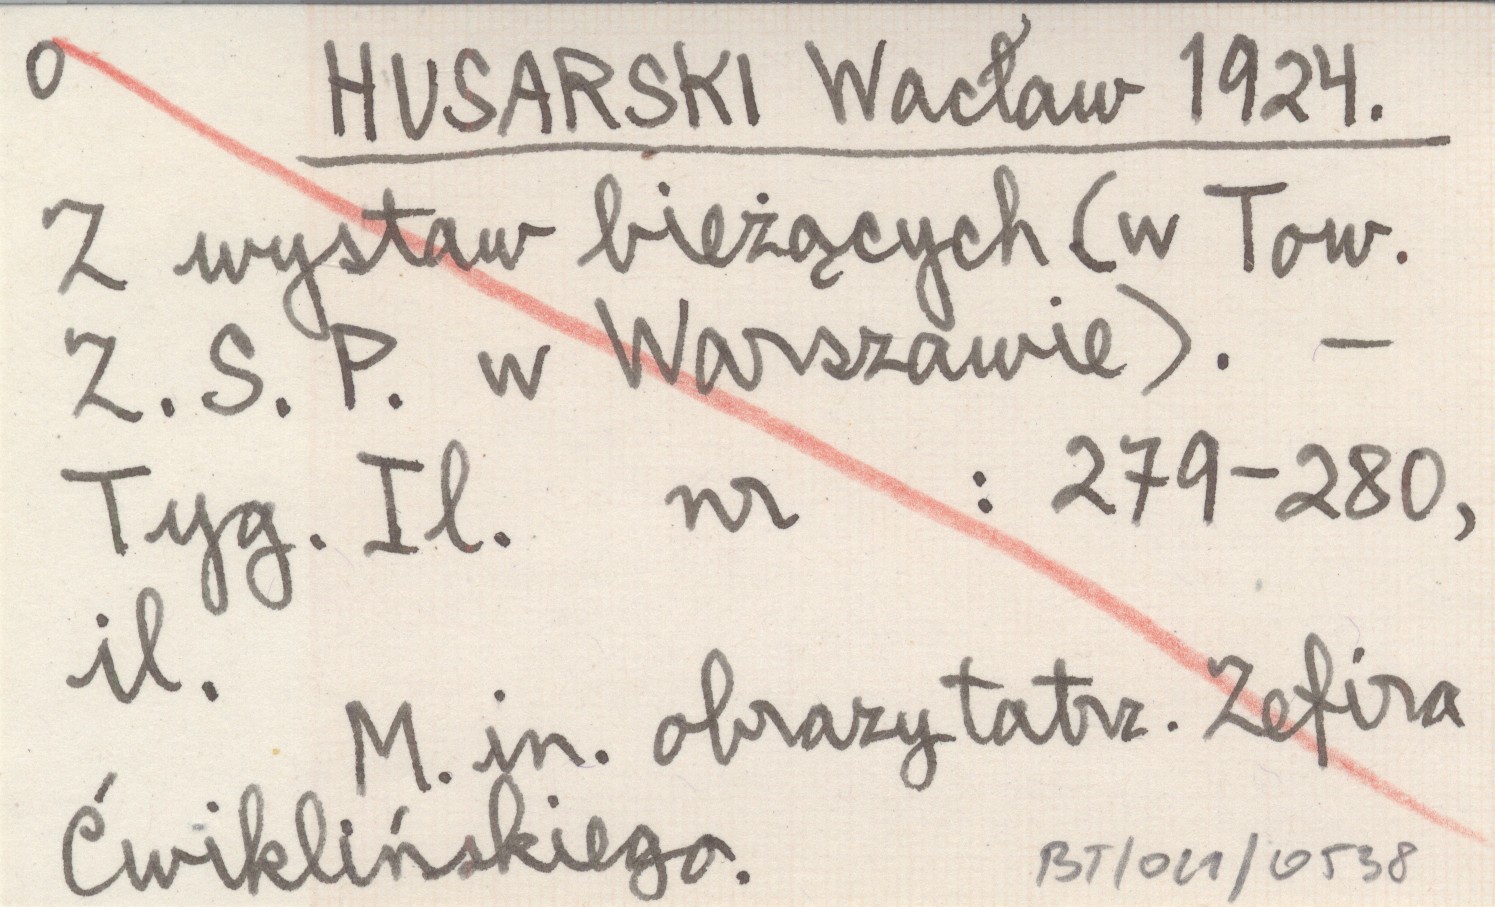 O HUSARSKI Wacław 1924.
Z wystaw bieżących (w Tow.
Z. S. P. w Warszawie). —
Tyg. Il. nr : 279-280,
il.
M. in. obrazy tatrz. Zefira
Ćwiklińskiego.
BT/041/0538